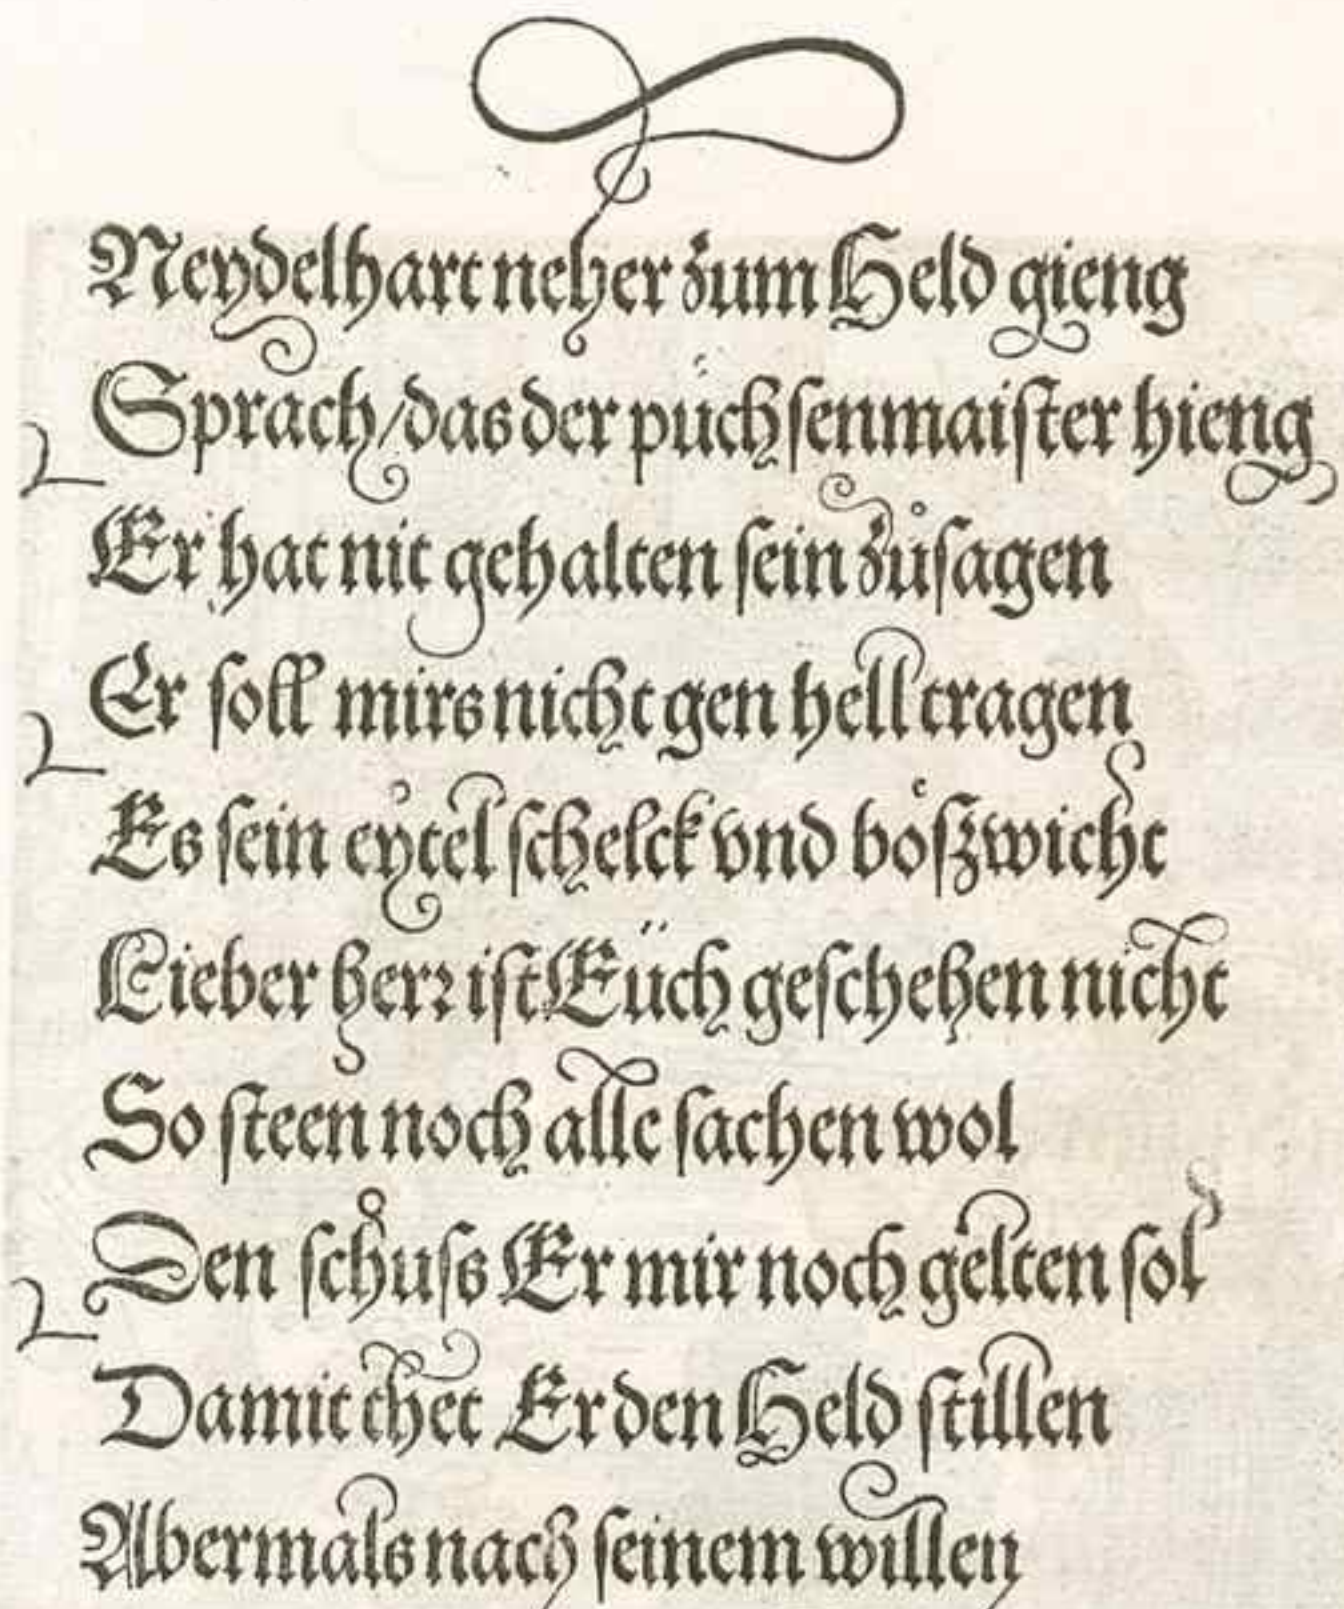 Neydelhart neher zum Held gieng
Sprach/das der püchsenmaister hieng
Er hat nit gehalten sein zůsagen
Er soll mirs nicht gen hell tragen
Es sein eytel schelck vnd böszwicht
Lieber herr ist Eüch geschehen nicht
So steen noch alle sachen wol
Den schůss Er mir noch gelten sol
Damit thet Er den Held stillen
Abermals nach seinem willen